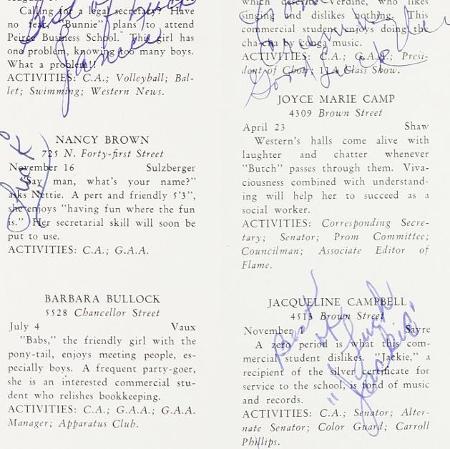 Calling for a legal secretary! Have
no fear. "Bunnie" plans to attend
Peirce Business School. This girl has
one problem, knowing too many boys.
What a problem!!
ACTIVITIES: C.A.; Volleyball; Bal-
let; Swimming; Western News.
NANCY BROWN
725 N. Forty-first Street
November 16 Sulzberger
"Say man, what's your name?"
asks Nettie. A pert and friendly 5'3",
she enjoys "having fun where the fun
is." Her secretarial skill will soon be
put to use.
ACTIVITIES: C.A.; G.A.A.
BARBARA BULLOCK
5528 Chancellor Street
July 4 Vaux
"Babs," the friendly girl with the
pony-tail, enjoys meeting people, es-
pecially boys. A frequent party-goer,
she is an interested commercial stu-
dent who relishes bookkeeping.
ACTIVITIES: C.A.; G.A.A.; G.A.A.
Manager; Apparatus Club.
who likes
singing and dislikes nothing. This
commercial student enjoys doing the
music.
ACTIVITIES: C.A.; G.A.A.; Presi-
dent of Choir; 11A Class Show.
JOYCE MARIE CAMP
4309 Brown Street
April 23 Shaw
Western's halls come alive with
laughter and chatter whenever
"Butch" passes through them. Viva-
ciousness combined with understand-
ing will help her to succeed as a
social worker.
ACTIVITIES: Corresponding Secre-
tary; Senator; Prom Committee;
Councilman; Associate Editor of
Flame.
JACQUELINE CAMPBELL
4513 Brown Street
November Sayre
A zero period is what this com-
mercial student dislikes. "Jackie," a
recipient of the silver certificate for
service to the school, is fond of music
and records.
ACTIVITIES: C.A.; Senator; Alter-
nate Senator; Color Guard; Carroll
Phillips.
Best of Luck
"Jackie"